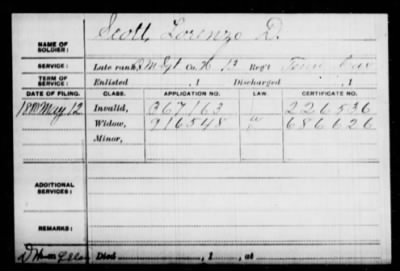 Scott, Lorenzo D.
NAME OF SOLDIER:
SERVICE: Late rank, Sgt Co. 12 Reg't Tenn Cav
TERM OF SERVICE: Enlisted , 1 Discharged , 1
DATE OF FILING. CLASS. APPLICATION NO. LAW. CERTIFICATE NO.
Invalid, 367,163 226536
May 12
Widow, 916548 686626
Minor,
ADDITIONAL SERVICES:
REMARKS:
Died , 1 , at